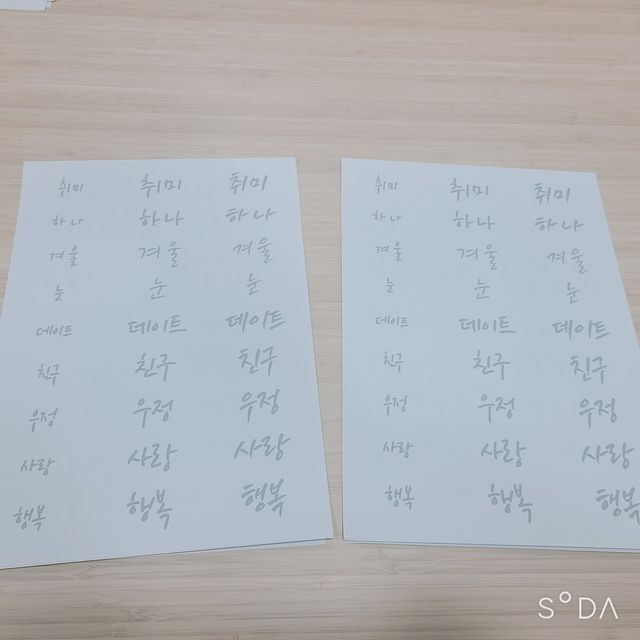 취미 취미 취미
하나 하나 하나
겨울 겨울 겨울
눈 눈 눈
데이트 데이트 데이트
친구 친구 친구
우정 우정 우정
사랑 사랑 사랑
행복 행복 행복
취미 취미 취미
하나 하나 하나
겨울 겨울 겨울
눈 눈 눈
데이트 데이트 데이트
친구 친구 친구
우정 우정 우정
사랑 사랑 사랑
행복 행복 행복
SODA